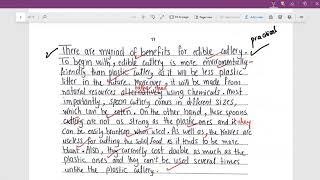 11
practical
There are myriad of benefits for edible cutlery.
To begin with, edible cutlery is more environmentally-
friendly than plastic cutlery as it will be less plastic
litter in the future. Moreover, it will be made from
natural resources alternatively using chemicals. Most
importantly, spoon cutlery comes in different sizes,
which can be eaten. On the other hand, these spoons
cutlery are not as strong as the plastic ones and it they
can be easily breakup when used. As well as, the knives are
useless for cutting the solid food as it tends to be more
blunt. Also, they currently cost double as much as the
plastic ones and they can't be used several times
unlike the plastic cutlery.